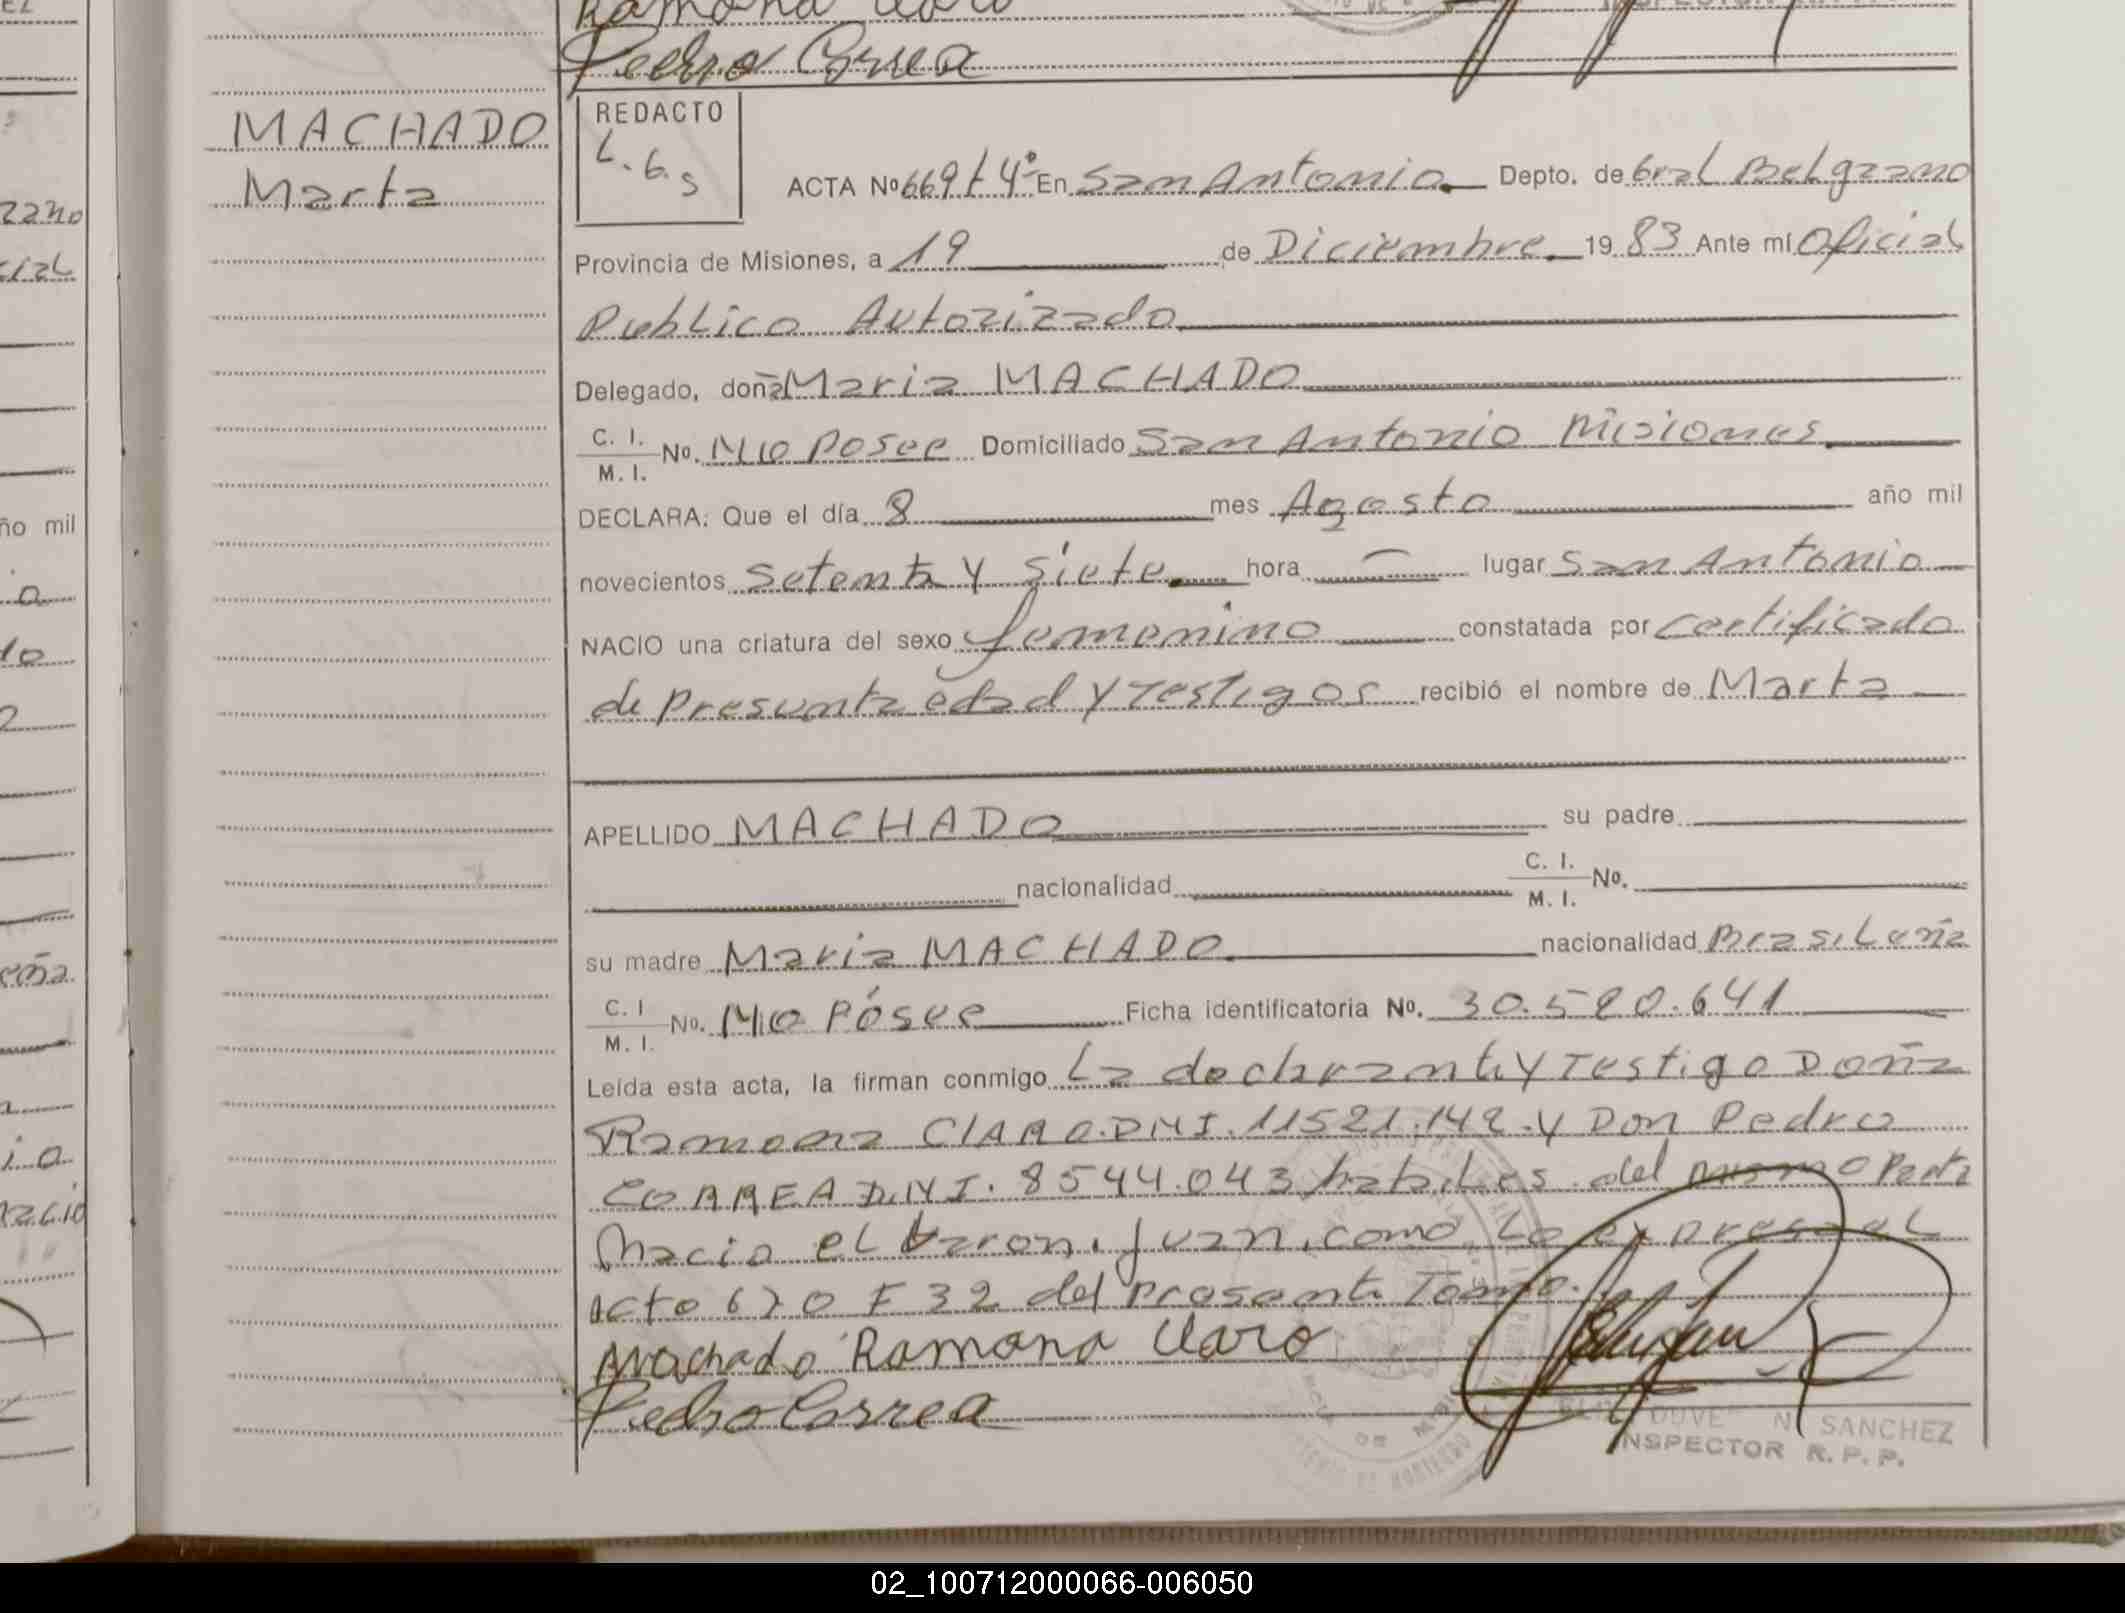 Ramona Claro
Pedro Correa
MACHADO
Marta
REDACTO
L.G.S
ACTA Nº 669 t 4º En San Antonio Depto. de Gral Belgrano
Provincia de Misiones, a 19 de Diciembre 19 83 Ante mí Oficial
Publico Autorizado
Delegado, doña Maria MACHADO
C. I.
M. I. Nº. No Posee Domiciliado San Antonio Misiones
DECLARA: Que el día 8 mes Agosto año mil
novecientos setenta y siete hora — lugar San Antonio
NACIO una criatura del sexo femenino constatada por certificado
de presunta edad y testigos recibió el nombre de Marta
APELLIDO MACHADO su padre
nacionalidad C. I.
M. I. Nº.
su madre Maria MACHADO nacionalidad Brasileña
C. I
M. I. Nº. No Pósee Ficha identificatoria Nº. 30.580.641
Leída esta acta, la firman conmigo La declarante y Testigo Doña
Ramona CLARO.DNI.11521.142.y Don Pedro
CORREA D.N.I. 8544.043 habiles del mismo Parto
Nacio el Varon. Juan. como Lo expresa el
acto 670 F 32 del presente Tomo.
Machado Ramona Claro
Pedro Correa
N. SANCHEZ
INSPECTOR R. P. P.
zano
cial
ño mil
o
do
eña
io
02_100712000066-006050